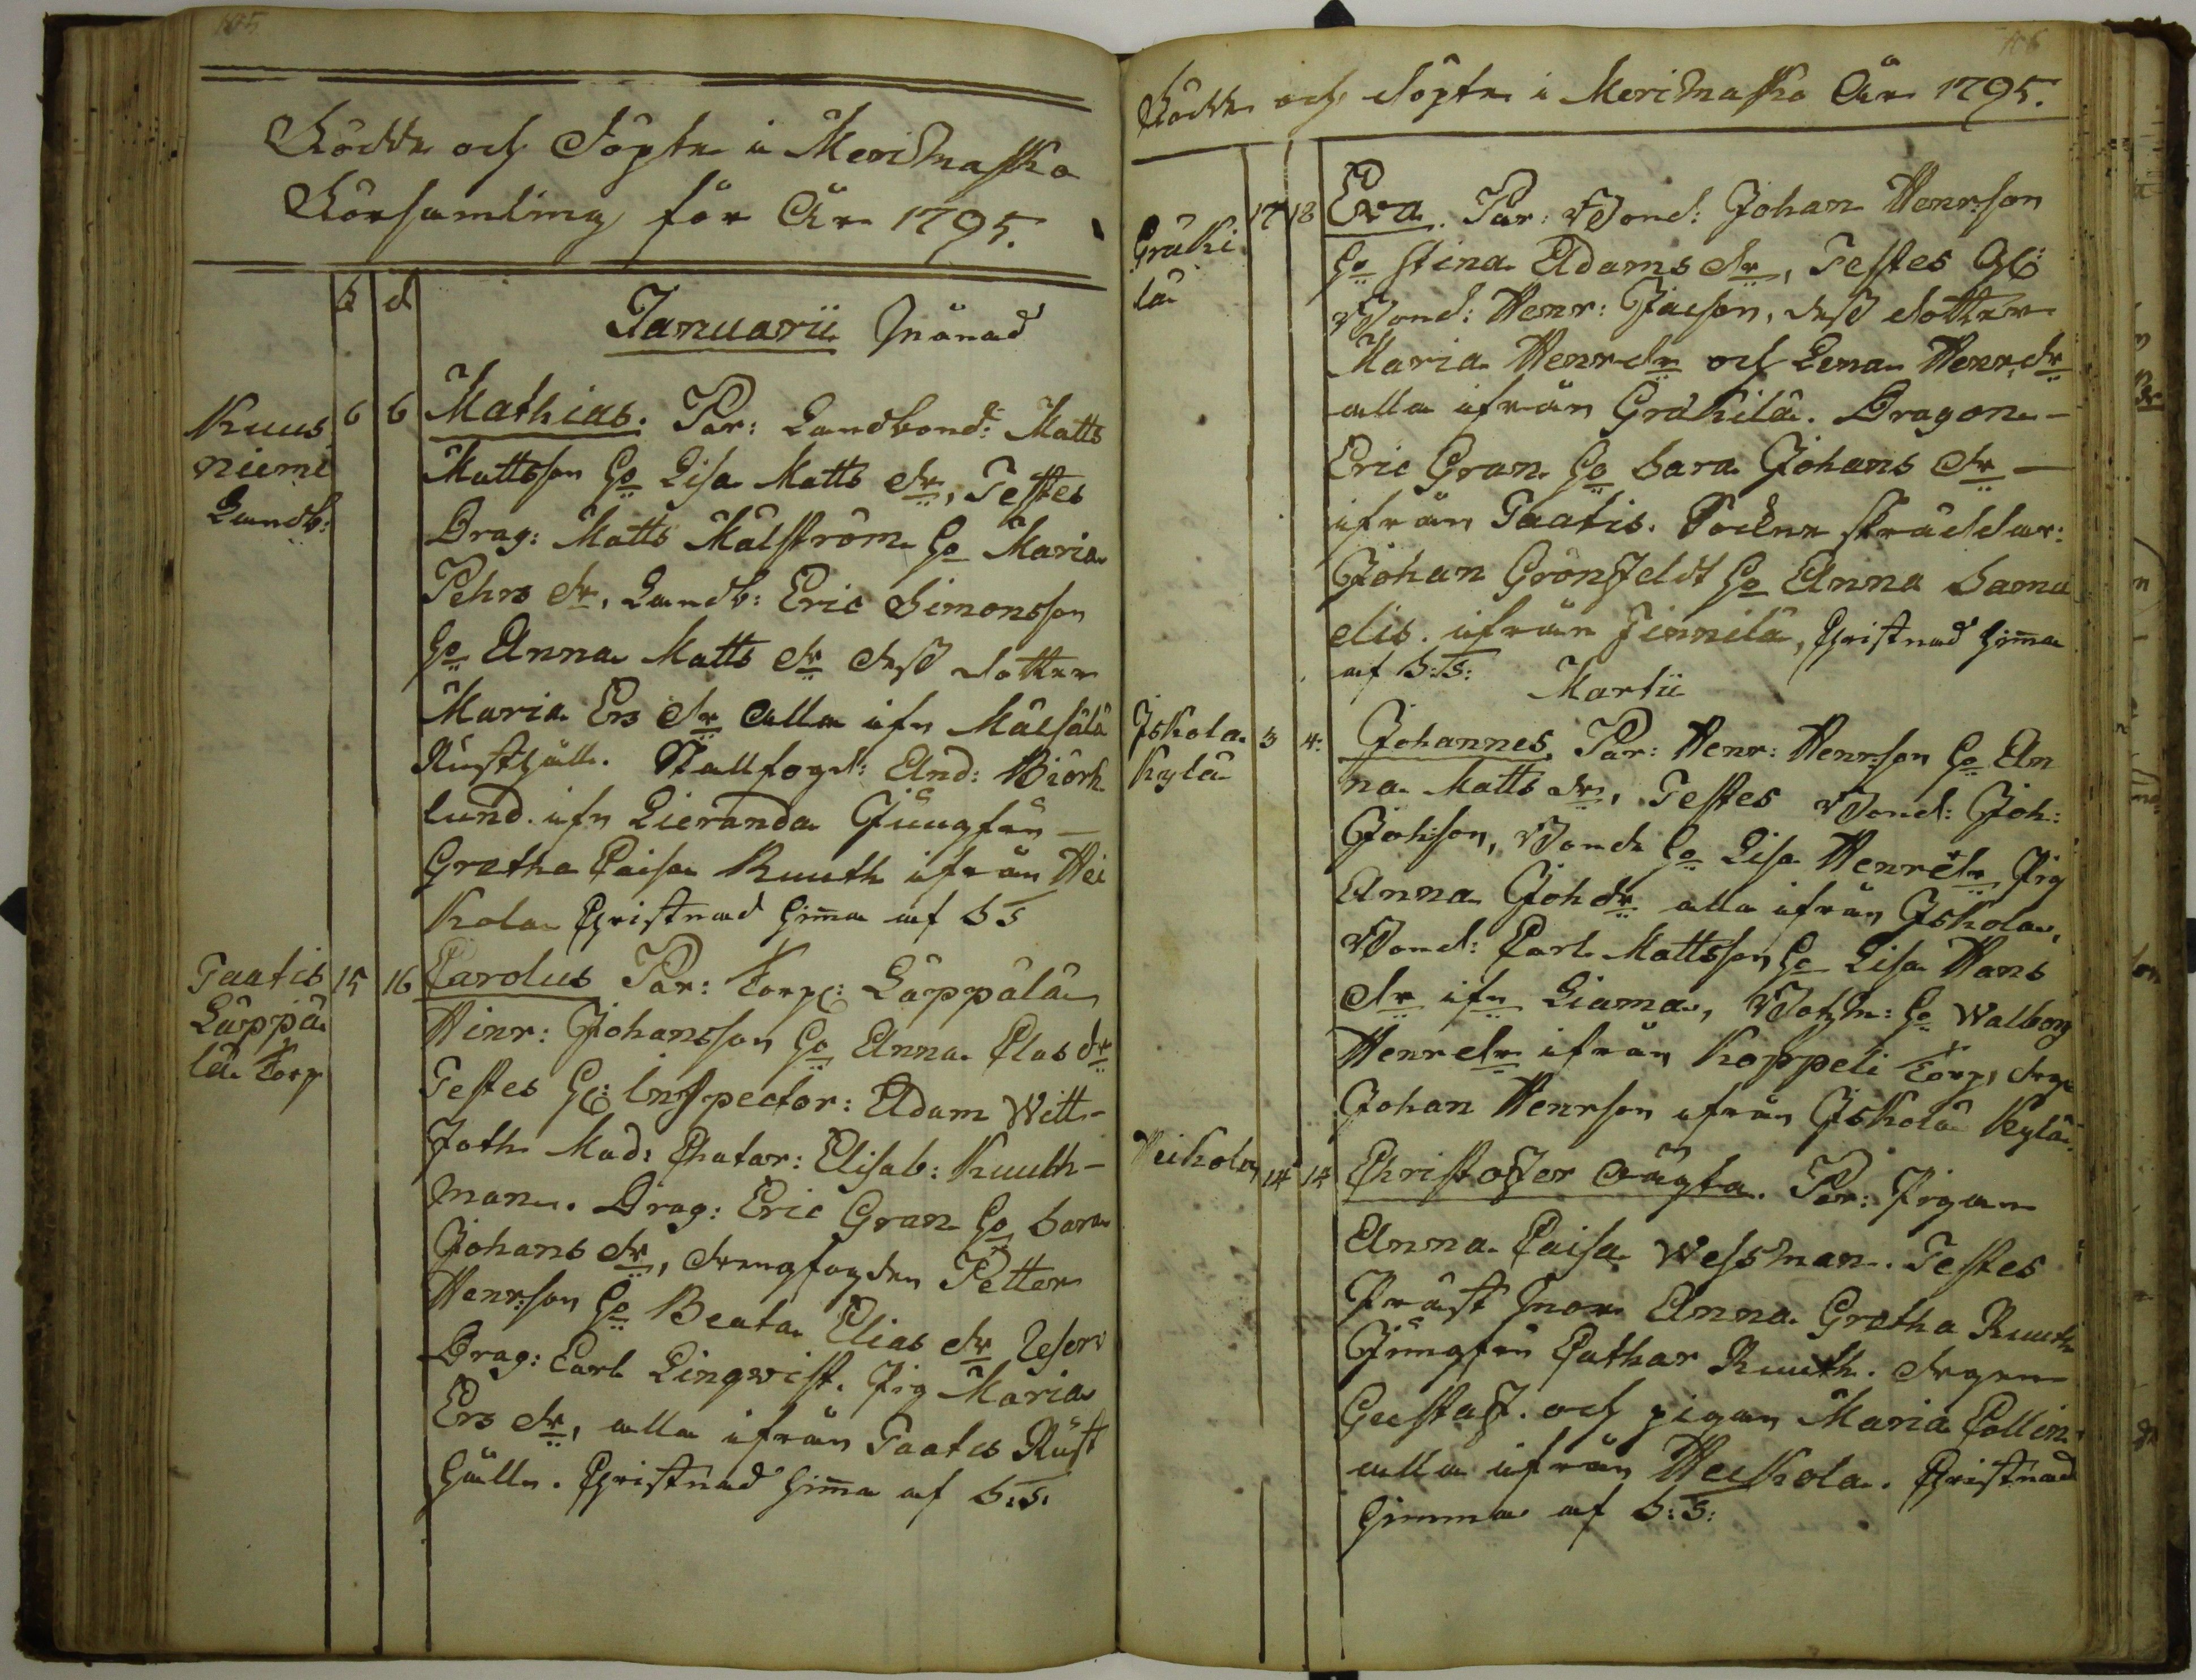 105
Födde och Döpte i Merimasko
Församling för År 1795.
f d
Januarii Månad
Kuus
niemi
Landb:
6 6 Mathias. Par: Landbond: Matts
Mattsson Ho Lisa Matts dr, Testes
Drag: Matts Malström Ho Maria
Pehrs dr, Landb: Eric Simonsson
Ho Anna Matts dr dess dotter
Maria Ers dr alla ifr Mälsälä
Rusthåll. Stallfogd: And: Biörk
lund ifr Lieranda Jungfru
Gretha Caisa Ruuth ifrån Hei
kola Christnad hema af S S
Taatis
Lappä
lä Torp
15 16 Carolus Par: Torp: Lappälä
Hinr: Johansson Ho Anna Clas dr
Testes H: Inspector: Adam Witt-
foth Mad: Chatar: Elisab: Kuuth-
man. Drag: Eric Gran Ho Sara
Johans dr, drengfogden Petter
Henrson Ho Beata Elias dr Reserv
Drag: Carl Lingvist. Pig Maria
Ers dr, alla ifrån Taatis Rust
håll. Christnad hema af S:S.
106
Födde och döpte i Merimasko År 1795.
Gräki
lä
17 18 Eva. Par: Bond: Johan Henr:son
Ho Stina Adams dr, Testes
Bond: Henr: Jacson, dess dotter
Maria Henrdr och Lena Henr:dr
alla ifrån Gräkilä. Dragon
Eric Gran Ho Sara Johans dr
ifrån Taatis. Sockne skräddar:
Johan Grönfeldt Ho Anna Samu
elis. ifrån Finnilä, Christnad hema
af S:S: Martii
Iskola
Kylä
3 4: Johannes. Par: Henr: Henrson Ho An
na Matts dr, Testes Bond: Joh:
Johson, Bond: Ho Lisa Henrdr Pig
Anna Johdr alla ifrån Iskola,
Bond: Carl Mattsson Ho Lisa Hans
dr ifr Liama, Ho Walborg
Henrdr ifrån Koppeli Torp, drg
Johan Henrson ifrån Iskola Kylä.
Heikola
14 14 Christoffer oägta. Par: Pigan
Anna Caisa Wessman. Testes
Präst mor Anna Gretha Ruuth
Jungfru Cathar Ruuth. dregen
Gustaf. och pigan Maria Collin
alla ifrån Heikola. Christnad
himma af S:S: